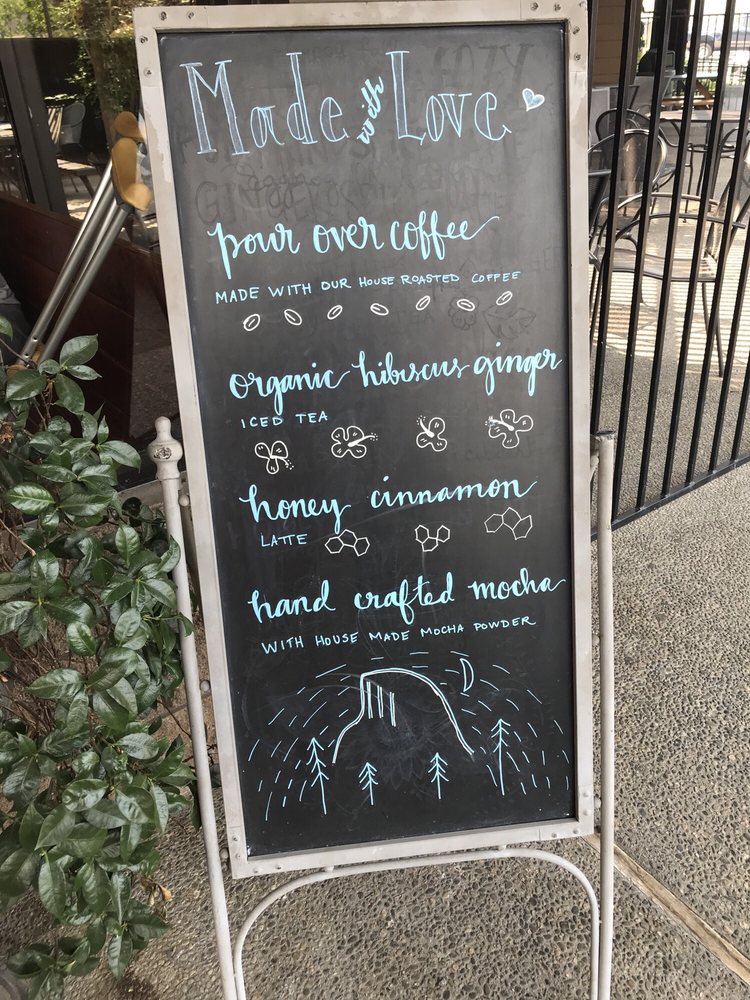 Made with Love
pour over coffee
MADE WITH OUR HOUSE ROASTED COFFEE
organic hibiscus ginger
ICED TEA
honey cinnamon
LATTE
hand crafted mocha
WITH HOUSE MADE MOCHA POWDER